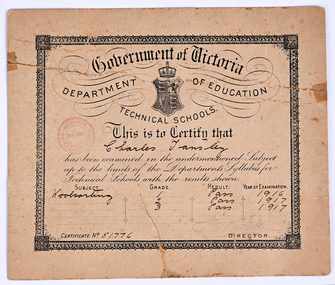 Government of Victoria
DEPARTMENT OF EDUCATION
TECHNICAL SCHOOLS.
This is to Certify that
Charles Tansley
has been examined in the undermentioned Subject
up to the limits of the Department's Syllabus for
Technical Schools with the results shown
SUBJECT. GRADE. RESULT. YEAR OF EXAMINATION.
Woolsorting Pass 1916
2 Pass 1917
3 Pass 1917
CERTIFICATE No 51776 DIRECTOR